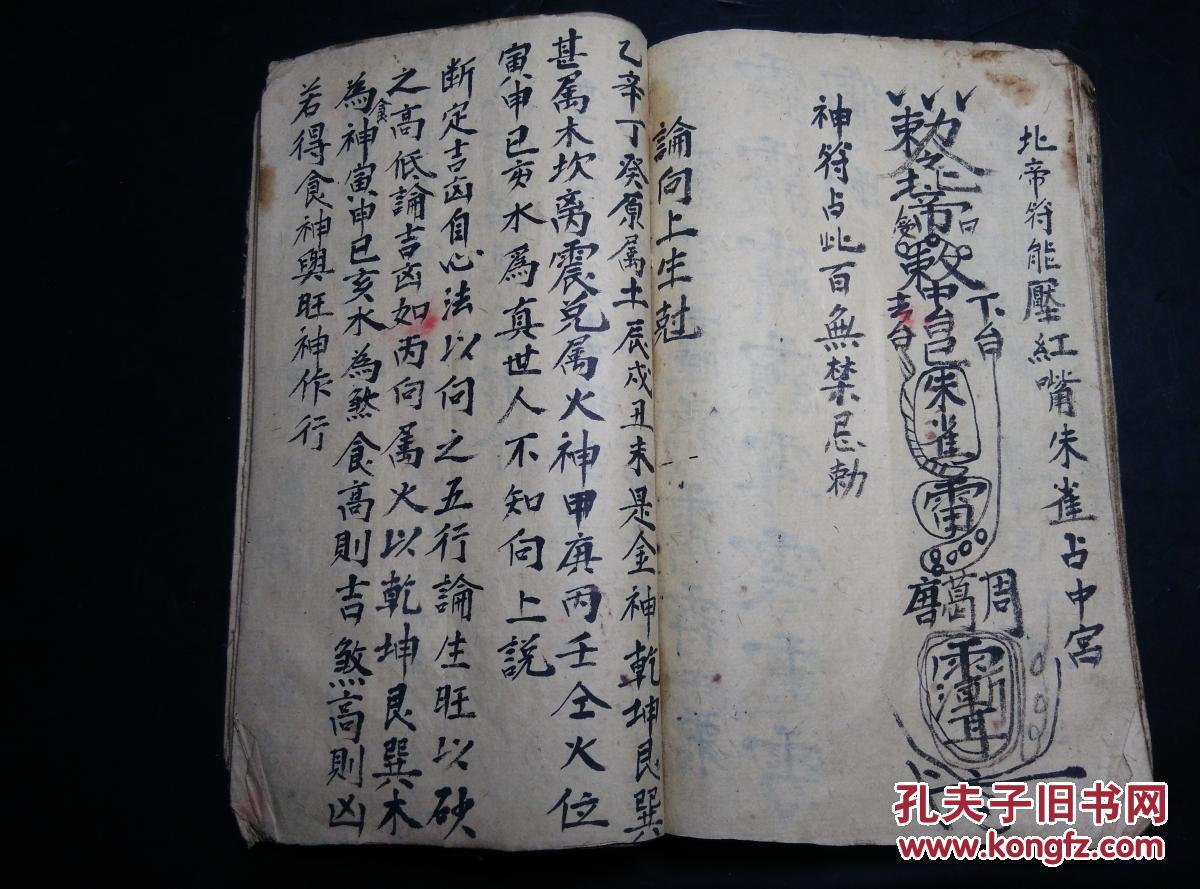 北帝符能壓紅嘴朱雀占中宮
勅令北帝
敕中宮朱雀
下台
雷
周
葛
唐
神符占此百無禁忌勅
論向上生尅
乙辛丁癸原属土辰戌丑未是金神乾坤艮巽
甚属木坎离震兑属火神甲庚丙壬仝火位
寅申巳亥水為真世人不知向上説
断定吉凶自心法以向之五行論生旺以砂
之高低論吉凶如丙向属火以乾坤艮巽木
為食神寅申巳亥水為煞食高則吉煞高則凶
若得食神與旺神作行
孔夫子旧书网
www.kongfz.com